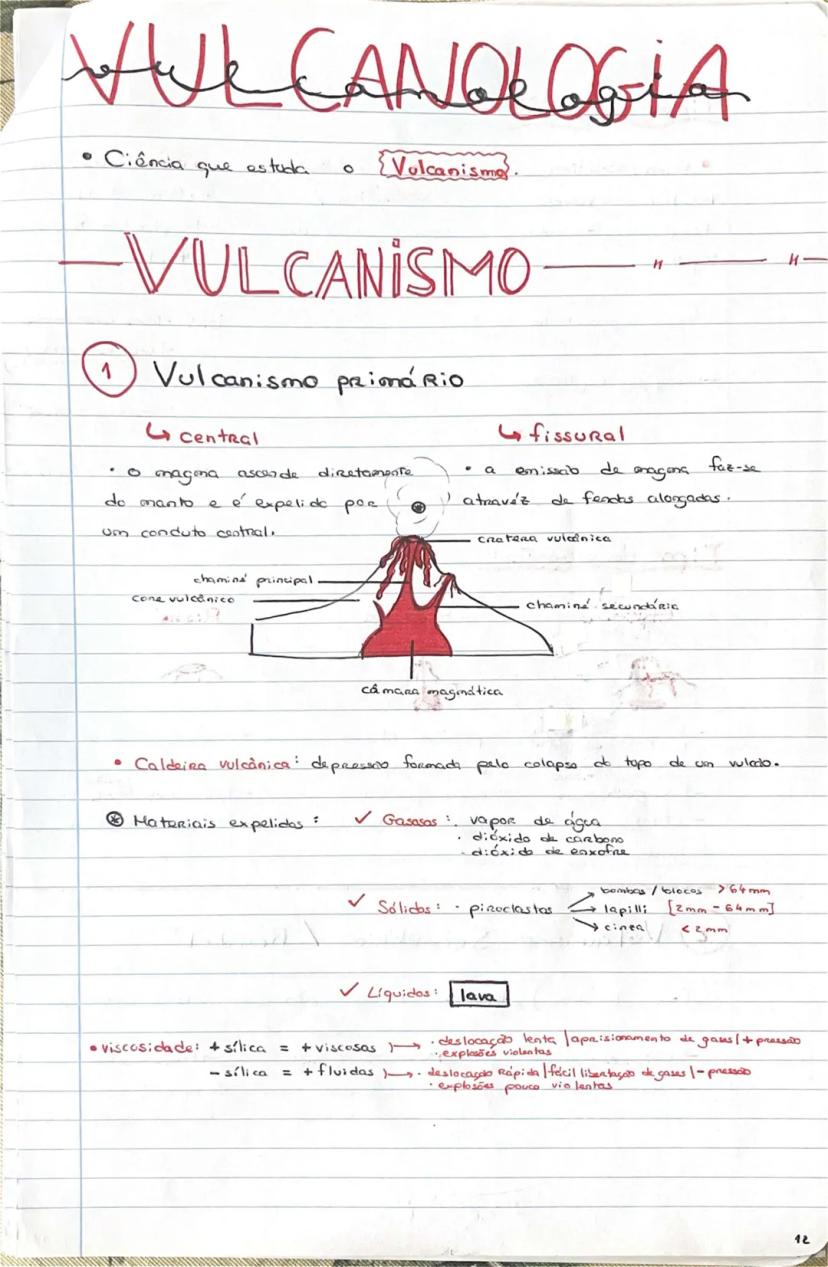 VULCANOLOGIA
vulcanologia
• Ciência que estuda o Vulcanismo.
VULCANISMO
1 Vulcanismo primário
↳ central
• o magma ascende diretamente
do manto e é expelido por
um conduto central.
↳ fissural
• a emissão de magma faz-se
atravéz de fendas alongadas.
cratera vulcânica
chaminé principal
cone vulcânico
chaminé secundária
câmara magmática
• Caldeira vulcânica: depressão formada pelo colapso do topo de um vulcão.
Materiais expelidos:
✓ Gasosos: · vapor de água
· dióxido de carbono
· dióxido de enxofre
✓ Sólidos: · piroclastos
→ bombas / blocos > 64 mm
→ lapilli [2mm - 64mm]
→ cinza < 2 mm
✓ Líquidos: lava
• viscosidade: + sílica = + viscosas → · deslocação lenta | aprisionamento de gases | + pressão
· explosões violentas
- sílica = + fluidas → · deslocação rápida | fácil libertação de gases | - pressão
· explosões pouco violentas
12